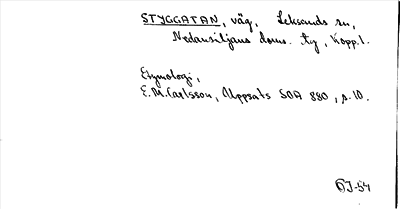 STYGGATAN, väg, Leksands sn,
Nedansiljans doms. tg, Kopp.l.
Etymologi,
E.M. Carlsson, Uppsats SOA 880, s. 10.
J-54